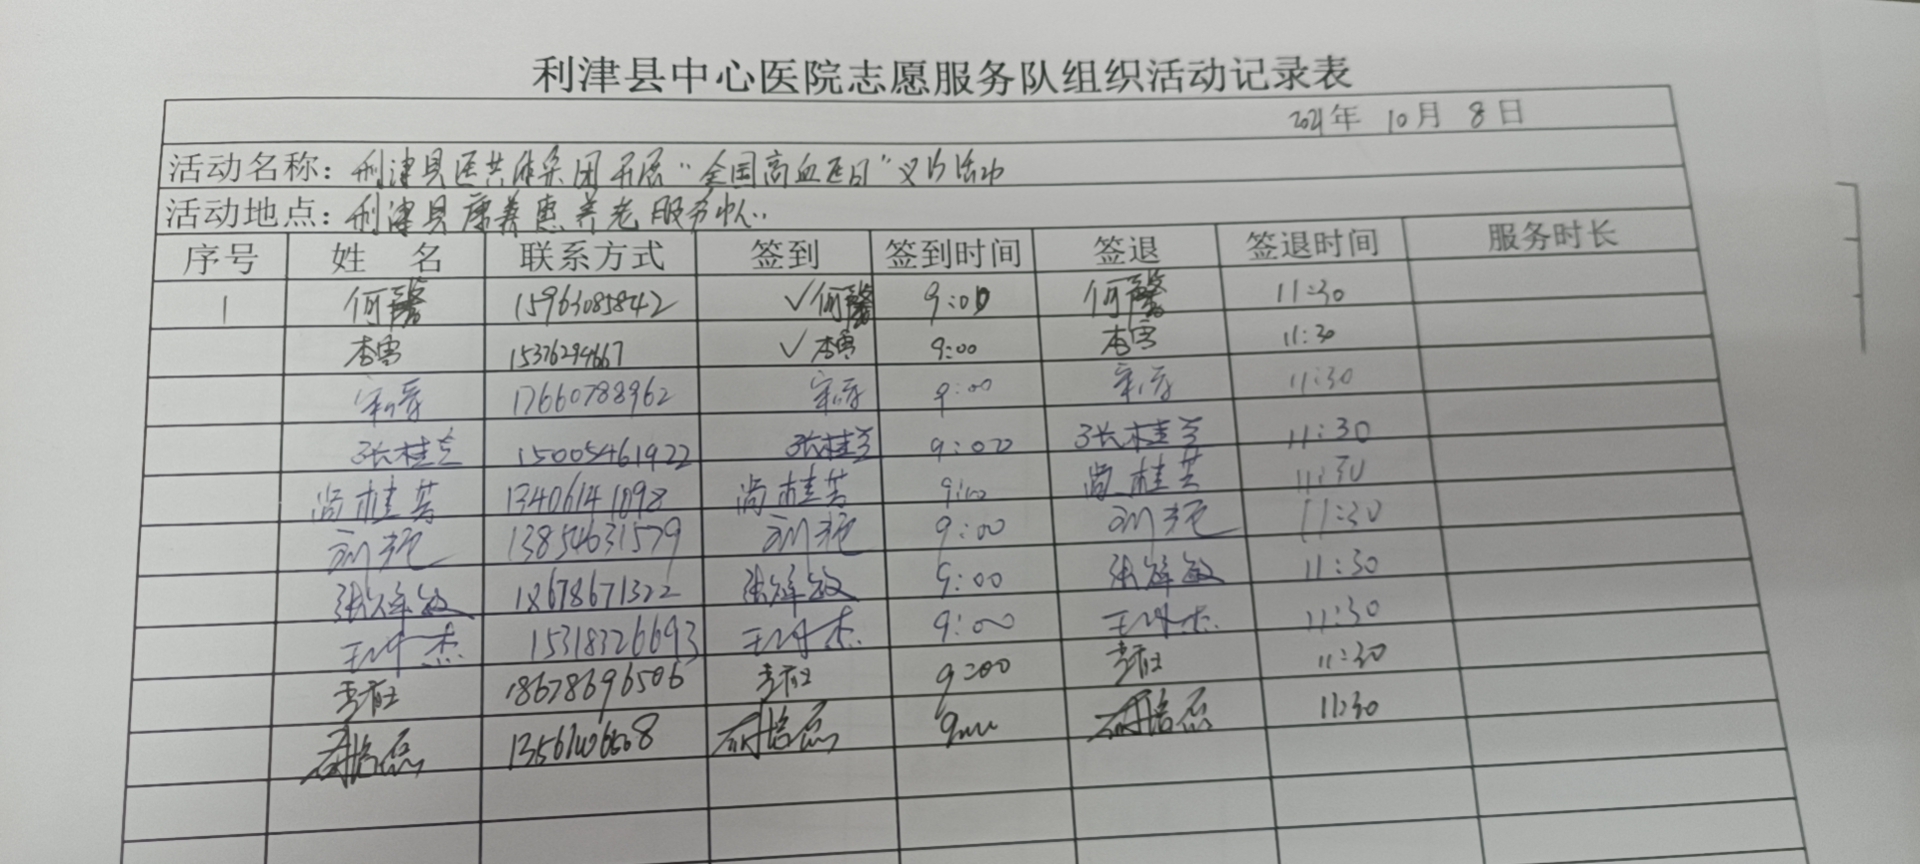 利津县中心医院志愿服务队组织活动记录表
2021年 10月 8日
活动名称：利津县医共体集团开展“全国高血压日”义诊活动
活动地点：利津县康养惠养老服务中心
序号 姓 名 联系方式 签到 签到时间 签退 签退时间 服务时长
1 何馨 15963085842 ✓何馨 9:00 何馨 11:30
李雪 15376294667 ✓李雪 9:00 李雪 11:30
17660788962 9:00 11:30
张桂兰 15005461922 张桂兰 9:00 张桂兰 11:30
尚桂芳 13406141098 尚桂芳 9:00 尚桂芳 11:30
刘艳 13854631579 刘艳 9:00 刘艳 11:30
18678671322 9:00 11:30
15318326693 9:00 11:30
18678696506 9:00 11:30
9:00 11:30